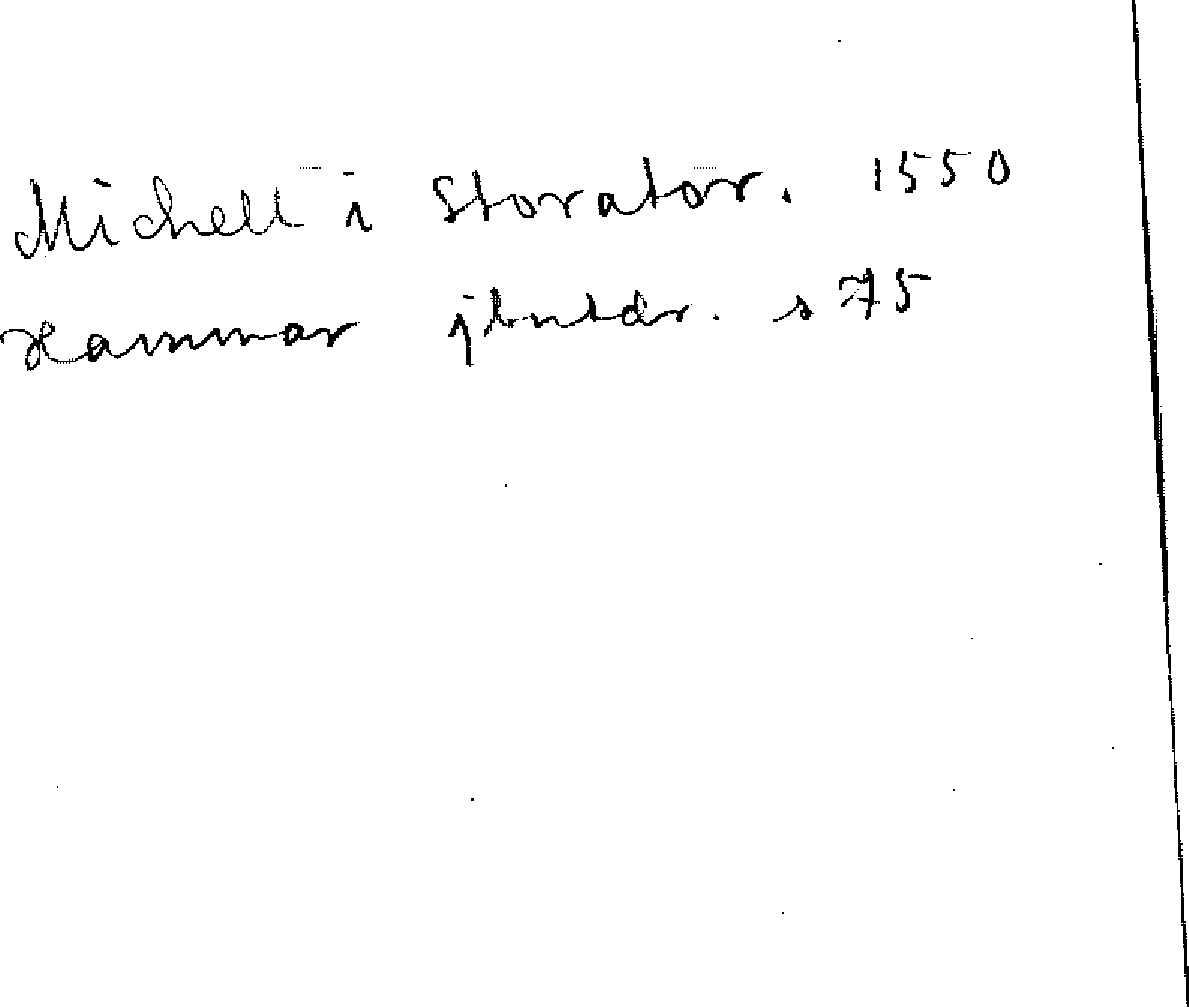 Michell i Storator. 1550
Hammar jbutdr. s 75